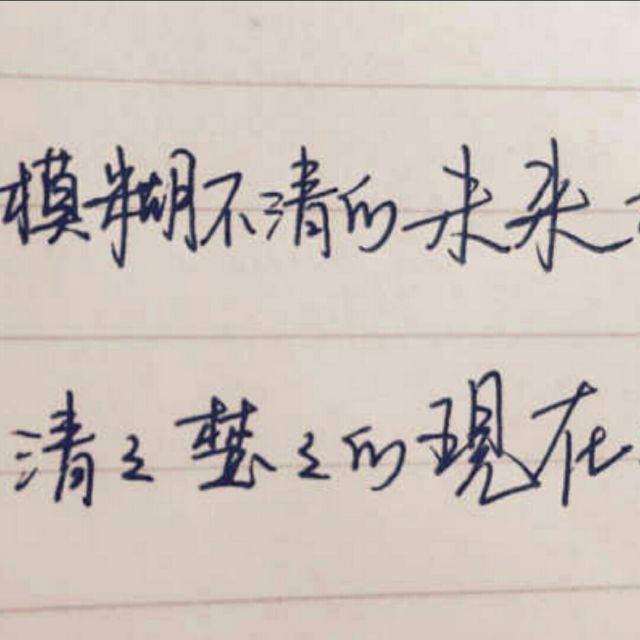 模糊不清的未来
清々楚々的现在